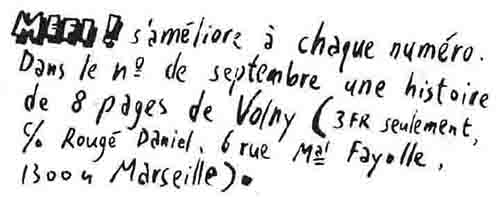 MEFI! s'améliore à chaque numéro.
Dans le nº de septembre une histoire
de 8 pages de Volny (3FR seulement,
c/o Rougé Daniel, 6 rue Mal Fayolle,
13004 Marseille).